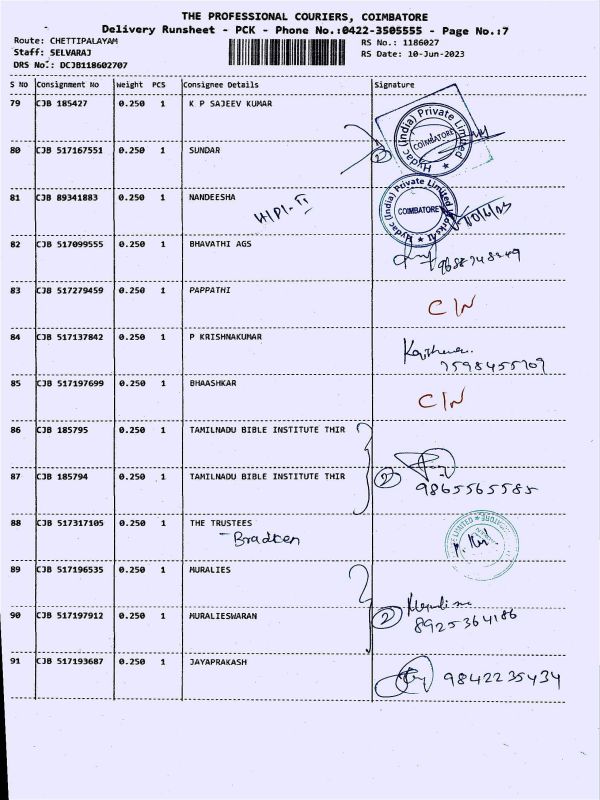 THE PROFESSIONAL COURIERS, COIMBATORE
Delivery Runsheet - PCK - Phone No.:0422-3505555 - Page No.:7
Route: CHETTIPALAYAM
RS No.: 1186027
Staff: SELVARAJ
RS Date: 10-Jun-2023
DRS No.: DCJB118602707
S No Consignment No Weight PCS Consignee Details Signature
79 CJB 185427 0.250 1 K P SAJEEV KUMAR
Hydac (India) Private Limited
COIMBATORE
80 CJB 517167551 0.250 1 SUNDAR
2
81 CJB 89341883 0.250 1 NANDEESHA
Hydac (India) Private Limited
COIMBATORE
82 CJB 517099555 0.250 1 BHAVATHI AGS
83 CJB 517279459 0.250 1 PAPPATHI
C/N
84 CJB 517137842 0.250 1 P KRISHNAKUMAR
85 CJB 517197699 0.250 1 BHAASHKAR
C/N
86 CJB 185795 0.250 1 TAMILNADU BIBLE INSTITUTE THIR
87 CJB 185794 0.250 1 TAMILNADU BIBLE INSTITUTE THIR
2
9865565585
88 CJB 517317105 0.250 1 THE TRUSTEES
- Bradken
89 CJB 517196535 0.250 1 MURALIES
90 CJB 517197912 0.250 1 MURALIESWARAN
2
8925364186
91 CJB 517193687 0.250 1 JAYAPRAKASH
9842235434